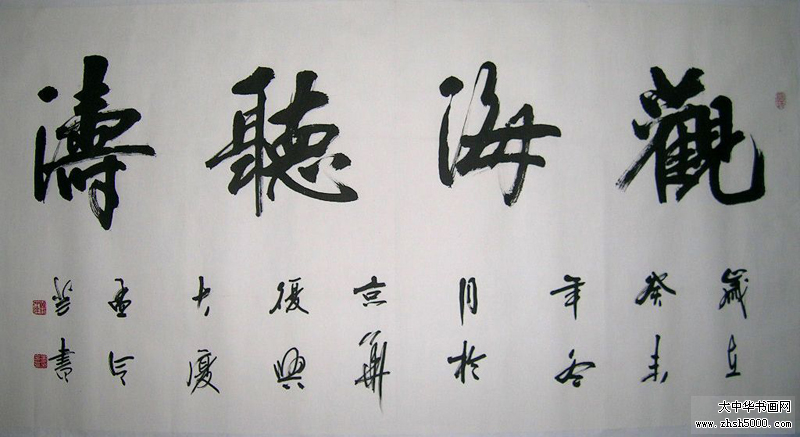 觀海聽濤
歲在
癸未
年冬
月於
京華
復興
大廈
孟令
書
大中华书画网
www.zhsh5000.com